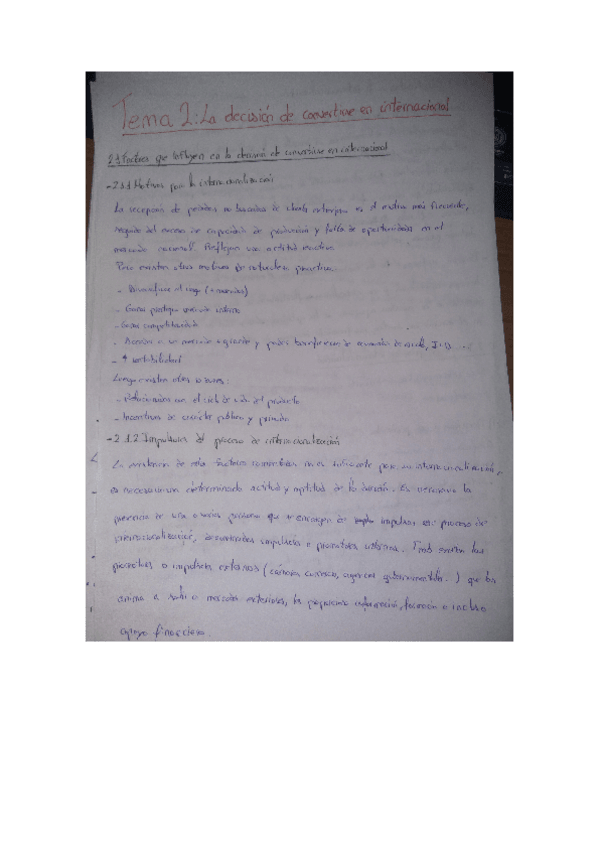 Tema 2: La decisión de convertirse en internacional
2.1 Factores que influyen en la decisión de convertirse en internacional
- 2.1.1 Motivos para la internacionalización
La recepción de pedidos no buscados de clientes extranjeros es el motivo más frecuente,
seguido del exceso de capacidad de producción y falta de oportunidades en el
mercado nacional. Reflejan una actitud reactiva.
Pero existen otros motivos de naturaleza proactiva:
- Diversificar el riesgo (+ mercados)
- Ganar prestigio mercado interno
- Ganar competitividad
- Acceder a un mercado + grande y poder beneficiarse de economías de escala, I+D ...
- ↑ rentabilidad
Luego existen otros motivos:
- Relacionados con el ciclo de vida del producto
- Incentivos de carácter público y privado
- 2.1.2 Impulsores del proceso de internacionalización
La existencia de estos factores comentados no es suficiente para su internacionalización,
es necesario una determinada actitud y aptitud de la dirección. Es necesario la
presencia de una o varias personas que se encarguen de impulsar ese proceso de
internacionalización, denominados impulsores o promotores internos. También existen los
promotores o impulsores externos (cámaras comercio, agencias gubernamentales..) que les
anima a salir a mercados exteriores, les proporciona información, formación o incluso
apoyo financiero.